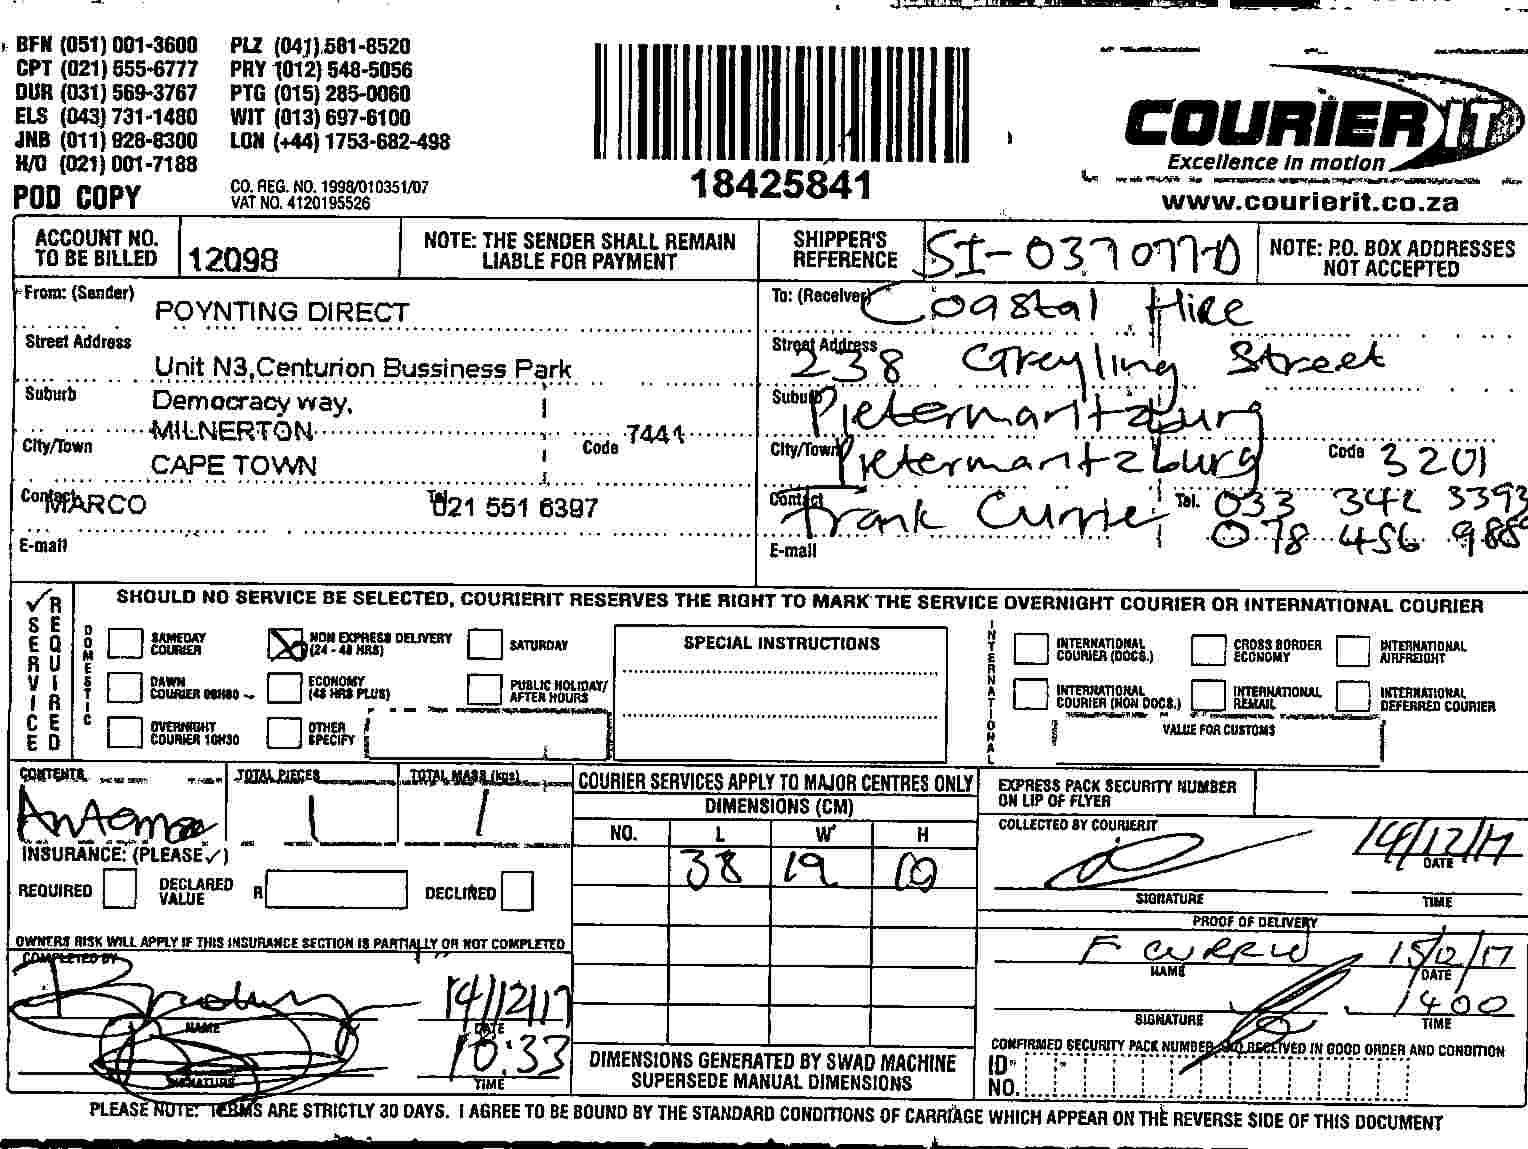 BFN (051) 001-3600 PLZ (041) 581-8520
CPT (021) 555-6777 PRY (012) 548-5056
DUR (031) 569-3767 PTG (015) 285-0060
ELS (043) 731-1480 WIT (013) 697-6100
JNB (011) 928-8300 LON (+44) 1753-682-498
H/O (021) 001-7188
POD COPY
CO. REG. NO. 1998/010351/07
VAT NO. 4120195526
18425841
COURIER IT
Excellence in motion
www.courierit.co.za
ACCOUNT NO. TO BE BILLED 12098
NOTE: THE SENDER SHALL REMAIN LIABLE FOR PAYMENT
SHIPPER'S REFERENCE SI-037077-D
NOTE: P.O. BOX ADDRESSES NOT ACCEPTED
From: (Sender) POYNTING DIRECT
Street Address Unit N3,Centurion Bussiness Park
Suburb Democracy way,
MILNERTON
City/Town CAPE TOWN Code 7441
Contact MARCO Tel 021 551 6397
E-mail
To: (Receiver) Coastal Hire
Street Address 238 Greyling Street
Suburb Pietermaritzburg
City/Town Pietermaritzburg Code 3201
Contact Frank Currie Tel. 033 342 3393
078 456
E-mail
SERVICE REQUIRED
SHOULD NO SERVICE BE SELECTED, COURIERIT RESERVES THE RIGHT TO MARK THE SERVICE OVERNIGHT COURIER OR INTERNATIONAL COURIER
DOMESTIC
SAMEDAY COURIER
NON EXPRESS DELIVERY (24 - 48 HRS)
SATURDAY
DAWN COURIER 08H00
ECONOMY (48 HRS PLUS)
PUBLIC HOLIDAY/ AFTER HOURS
OVERNIGHT COURIER 10H30
OTHER SPECIFY
SPECIAL INSTRUCTIONS
INTERNATIONAL
INTERNATIONAL COURIER (DOCS.)
CROSS BORDER ECONOMY
INTERNATIONAL AIRFREIGHT
INTERNATIONAL COURIER (NON DOCS.)
INTERNATIONAL REMAIL
INTERNATIONAL DEFERRED COURIER
VALUE FOR CUSTOMS
CONTENTS Antenna
TOTAL PIECES 1
TOTAL MASS (kgs) 1
INSURANCE: (PLEASE ✓)
REQUIRED DECLARED VALUE R DECLINED
OWNERS RISK WILL APPLY IF THIS INSURANCE SECTION IS PARTIALLY OR NOT COMPLETED
COMPLETED BY
NAME 14/12/17 DATE
SIGNATURE 10:33 TIME
COURIER SERVICES APPLY TO MAJOR CENTRES ONLY
DIMENSIONS (CM)
NO. L W H
38 19 10
DIMENSIONS GENERATED BY SWAD MACHINE SUPERSEDE MANUAL DIMENSIONS
EXPRESS PACK SECURITY NUMBER ON LIP OF FLYER
COLLECTED BY COURIERIT
14/12/17
DATE
SIGNATURE TIME
PROOF OF DELIVERY
F CURRIE 15/12/17
NAME DATE
1400
SIGNATURE TIME
CONFIRMED SECURITY PACK NUMBER AND RECEIVED IN GOOD ORDER AND CONDITION
ID NO.
PLEASE NOTE: TERMS ARE STRICTLY 30 DAYS. I AGREE TO BE BOUND BY THE STANDARD CONDITIONS OF CARRIAGE WHICH APPEAR ON THE REVERSE SIDE OF THIS DOCUMENT